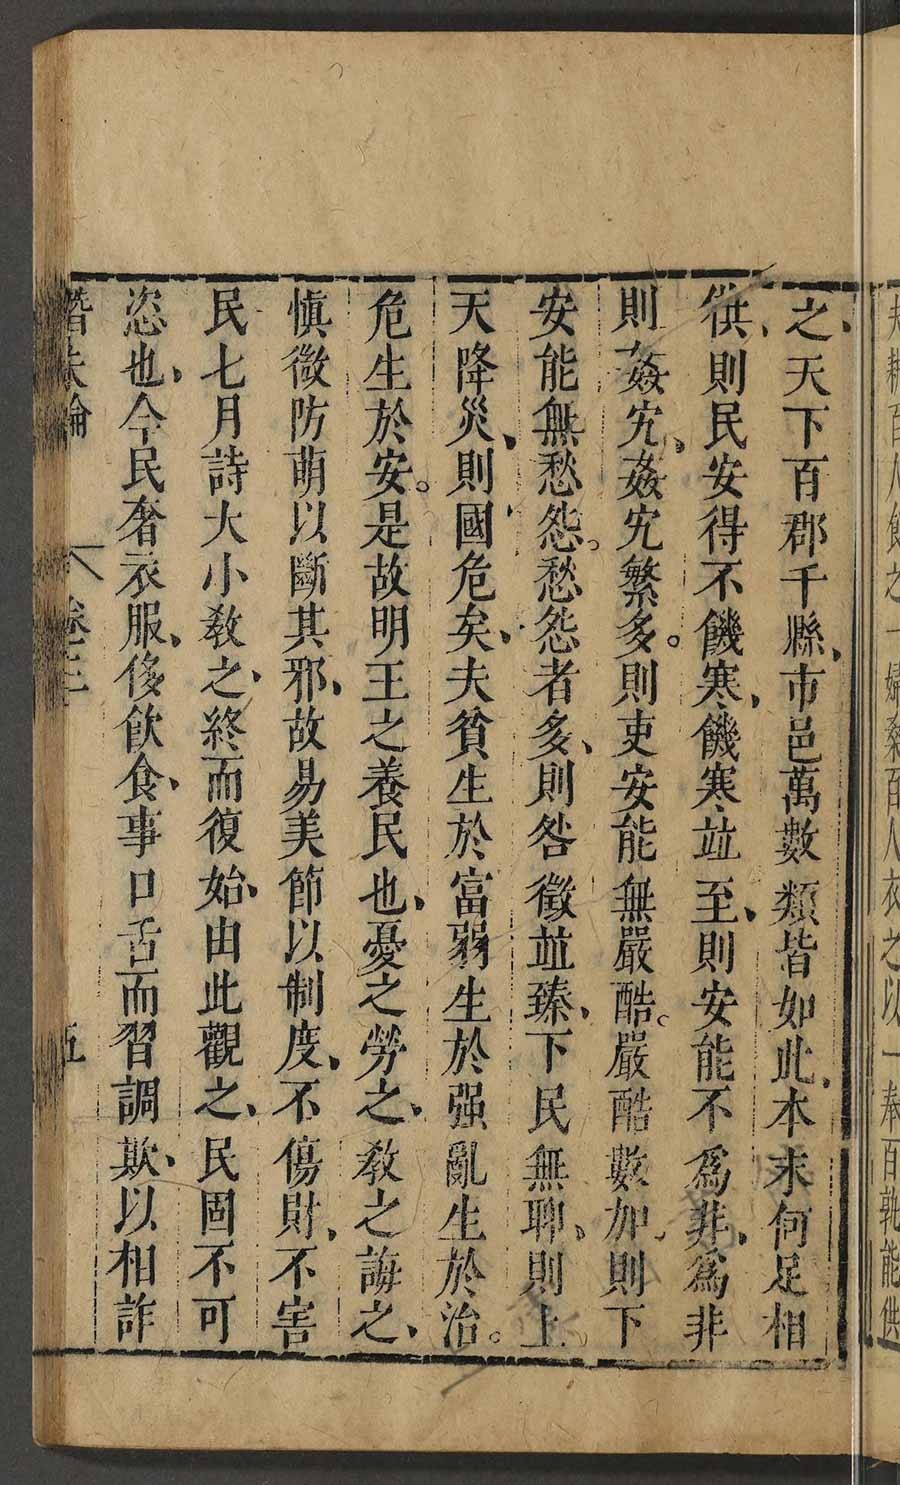 夫耕百人食之一婦桑百人衣之以一奉百孰能供
之天下百郡千縣市邑萬數類皆如此本末何足相
供則民安得不饑寒饑寒竝至則安能不爲非爲非
則姦宄姦宄繁多則吏安能無嚴酷嚴酷數加則下
安能無愁怨愁怨者多則咎徵竝臻下民無聊則上
天降災則國危矣夫貧生於富弱生於强亂生於治
危生於安是故明王之養民也憂之勞之敎之誨之
愼微防萌以斷其邪故易美節以制度不傷財不害
民七月詩大小敎之終而復始由此觀之民固不可
恣也今民奢衣服侈飮食事口舌而習調欺以相詐
潛夫論 卷三 五